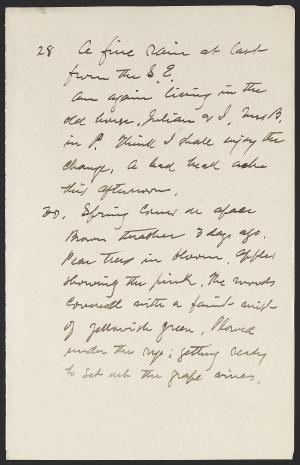 28 A fine rain at last
from the S.E.
Am again living in the
old house, Julian & I, Mrs B.
in P. Think I shall enjoy the
change. A bad head ache
this afternoon.
30. Spring comes on apace
Brown thrasher 3 days ago.
Pear trees in bloom, apples
showing the pink. The woods
covered with a faint mist
of yellowish green. Plowed
under the rye; getting ready
to set out the grape vines.